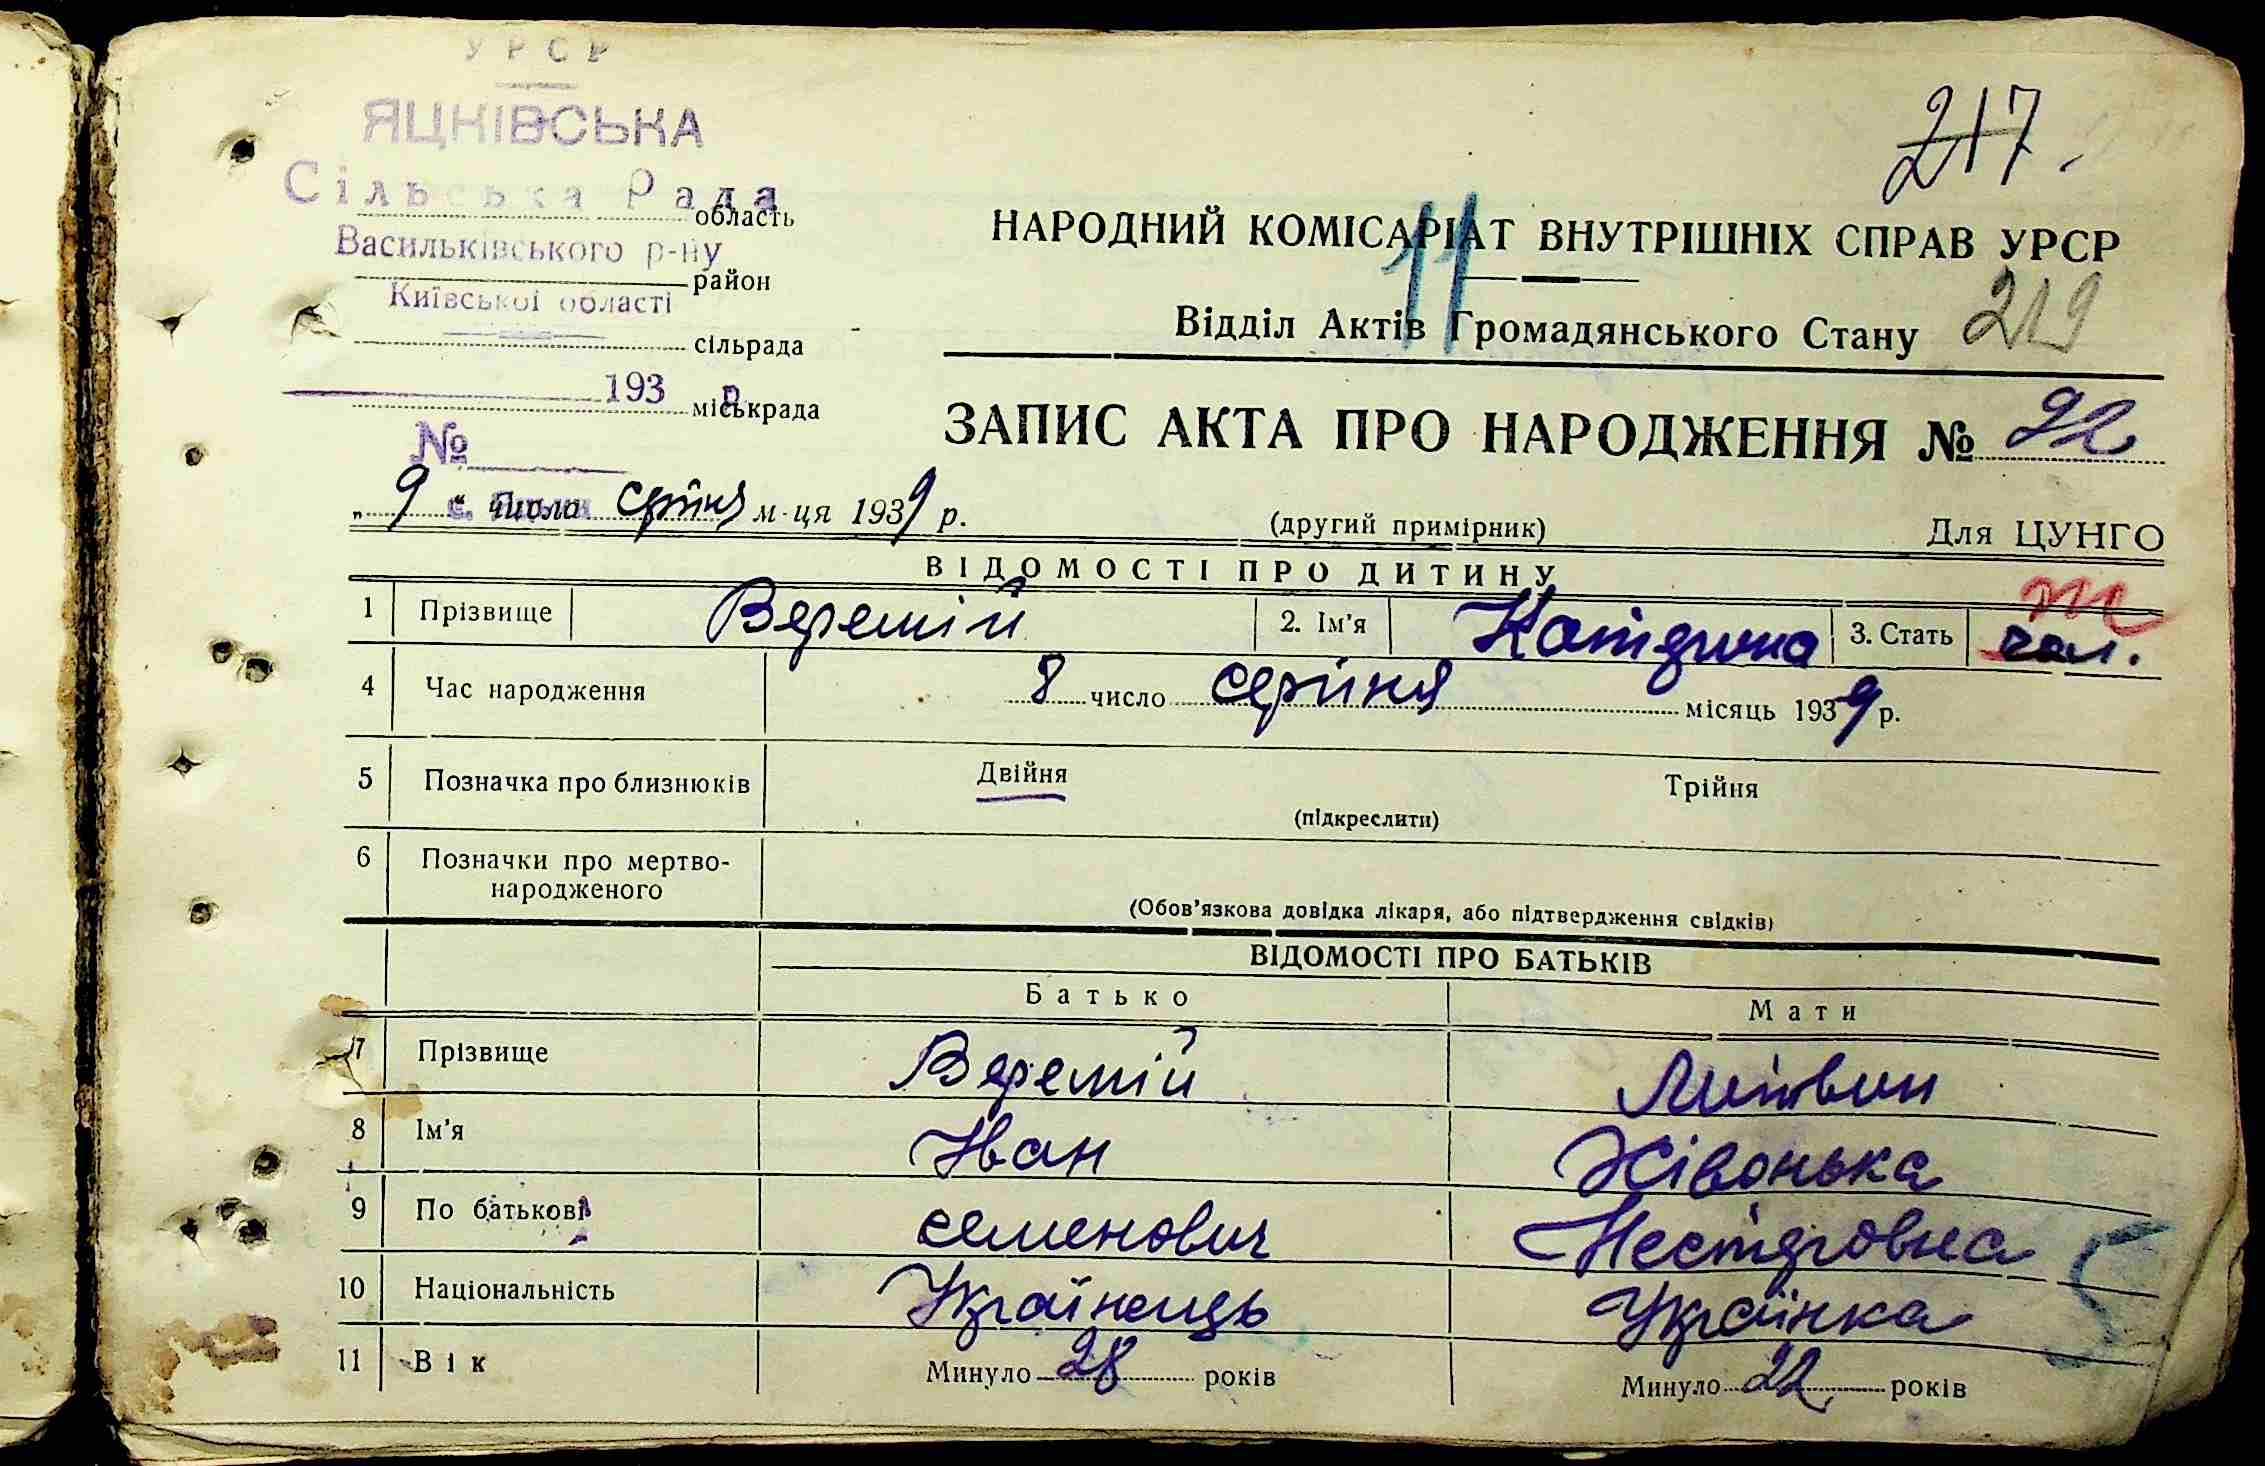 УРСР
ЯЦКІВСЬКА
Сільська Рада
область
Васильківського р-ну
район
Київської області
сільрада
193 р.
міськрада
№
217.
НАРОДНИЙ КОМІСАРІАТ ВНУТРІШНІХ СПРАВ УРСР
11
Відділ Актів Громадянського Стану 219
ЗАПИС АКТА ПРО НАРОДЖЕННЯ № 92
„ 9 “ числа серпня м-ця 1939 р. (другий примірник) Для ЦУНГО
ВІДОМОСТІ ПРО ДИТИНУ
1 Прізвище Веремій 2. Ім'я Катерина 3. Стать ж чол.
4 Час народження 8 число серпня місяць 1939 р.
5 Позначка про близнюків Двійня Трійня
(підкреслити)
6 Позначки про мертво-
народженого
(Обов'язкова довідка лікаря, або підтвердження свідків)
ВІДОМОСТІ ПРО БАТЬКІВ
Батько Мати
7 Прізвище Веремій Литвин
8 Ім'я Іван Хівонька
9 По батькові семенович Нестеровна
10 Національність Українець Українка
11 Вік Минуло 28 років Минуло 22 років